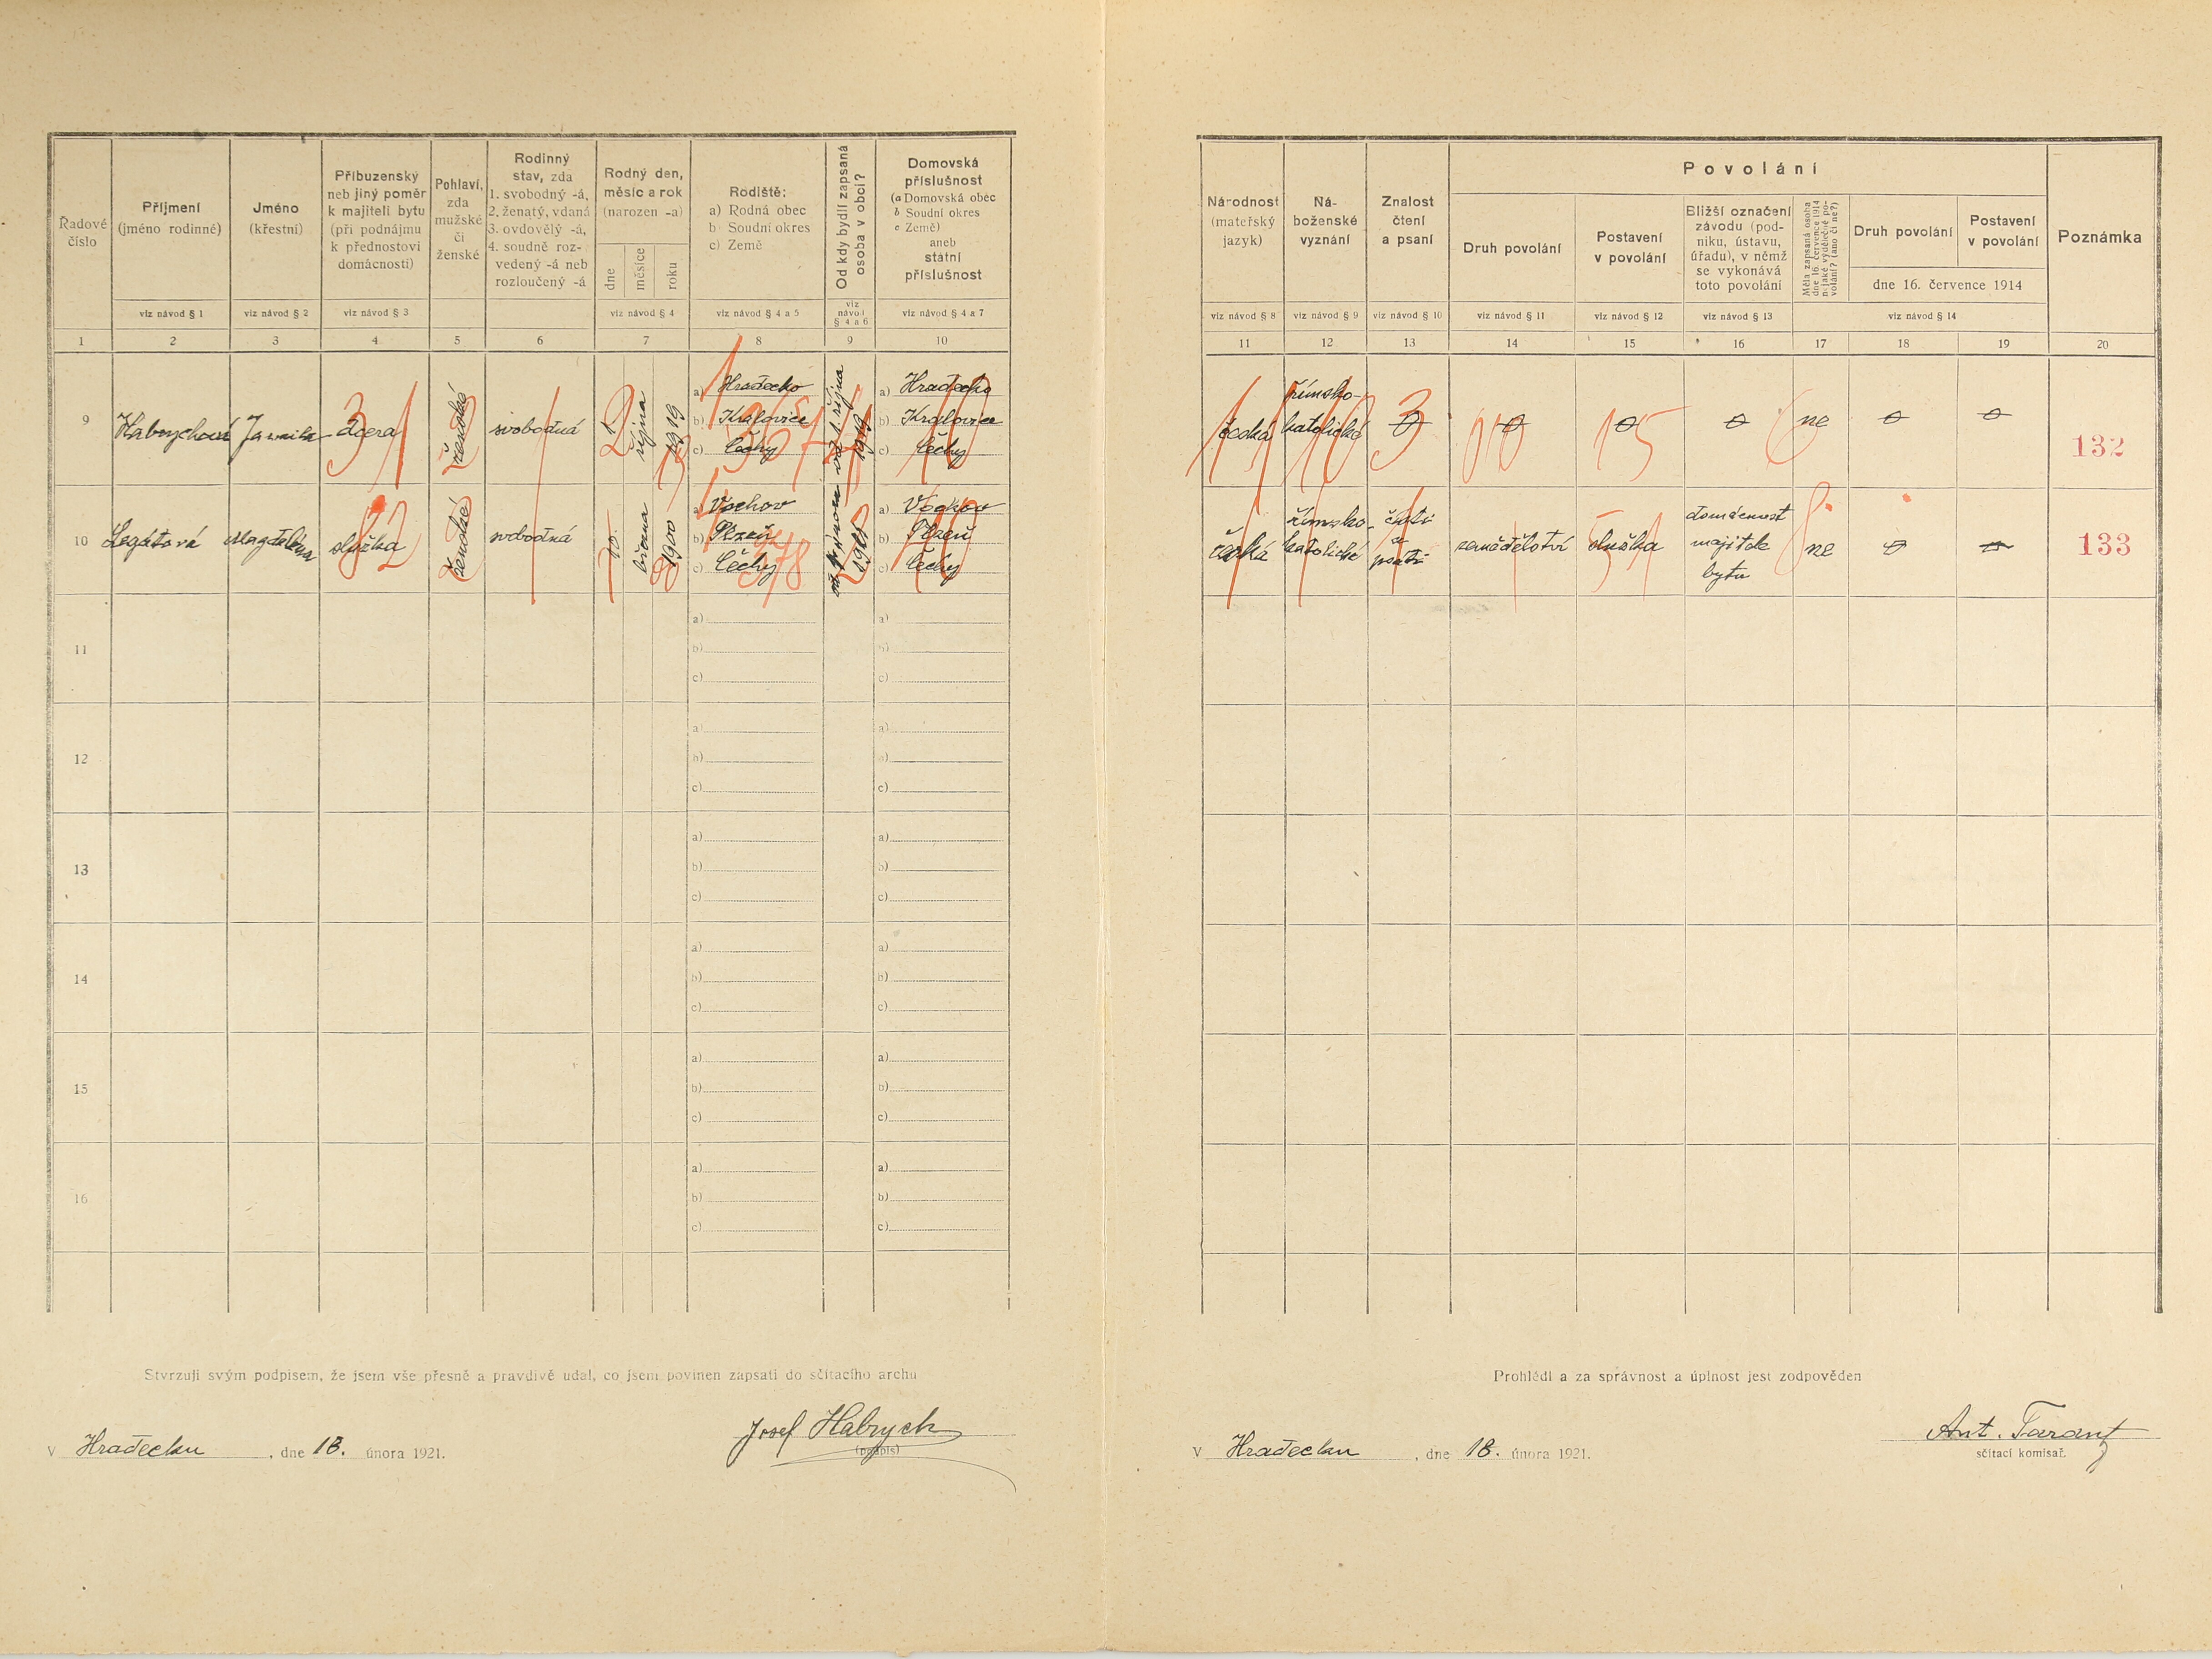 Řadové číslo
Příjmení
(jméno rodinné)
viz návod § 1
Jméno
(křestní)
viz návod § 2
Příbuzenský
neb jiný poměr
k majiteli bytu
(při podnájmu
k přednostovi
domácnosti)
viz návod § 3
Pohlaví,
zda
mužské
či
ženské
Rodinný
stav, zda
1. svobodný -á,
2. ženatý, vdaná
3. ovdovělý -á,
4. soudně roz-
vedený -á neb
rozloučený -á
Rodný den,
měsíc a rok
(narozen -a)
dne
měsíce
roku
viz návod § 4
Rodiště:
a) Rodná obec
b) Soudní okres
c) Země
viz návod § 4 a 5
Od kdy bydlí zapsaná
osoba v obci?
viz
návod
§ 4 a 6
Domovská
příslušnost
(a Domovská obec
b Soudní okres
c Země)
aneb
státní
příslušnost
viz návod § 4 a 7
1 2 3 4 5 6 7 8 9 10
9 Habrychová Jarmila dcera ženské svobodná 1. října 1919
a) Hradecko
b) Kralovice
c) Čechy
od 1. října
1919
a) Hradecko
b) Kralovice
c) Čechy
10 Legátová Magdaléna služka ženské svobodná 10. února 1900
a) Vochov
b) Plzeň
c) Čechy
a) Vochov
b) Plzeň
c) Čechy
11
a)
b)
c)
a)
b)
c)
12
a)
b)
c)
a)
b)
c)
13
a)
b)
c)
a)
b)
c)
14
a)
b)
c)
a)
b)
c)
15
a)
b)
c)
a)
b)
c)
16
a)
b)
c)
a)
b)
c)
Stvrzuji svým podpisem, že jsem vše přesně a pravdivě udal, co jsem povinen zapsati do sčítacího archu
V Hradecku, dne 18. února 1921.
Josef Habrych
(podpis)
Národnost
(mateřský
jazyk)
viz návod § 8
Ná-
boženské
vyznání
viz návod § 9
Znalost
čtení
a psaní
viz návod § 10
Povolání
Druh povolání
viz návod § 11
Postavení
v povolání
viz návod § 12
Bližší označení
závodu (pod-
niku, ústavu,
úřadu), v němž
se vykonává
toto povolání
viz návod § 13
Měla zapsaná osoba
dne 16. července 1914
nějaké výdělečné po-
volání? (ano či ne?)
Druh povolání
Postavení
v povolání
dne 16. července 1914
viz návod § 14
Poznámka
11 12 13 14 15 16 17 18 19 20
česká
římsko-
katolické
ne
132
česká
římsko-
katolické
čísti
a
psáti
zemědělství
služka
domácnost
majitele
bytu
ne
133
Prohlédl a za správnost a úplnost jest zodpověden
V Hradecku, dne 18. února 1921.
Ant. Tarant
sčítací komisař.